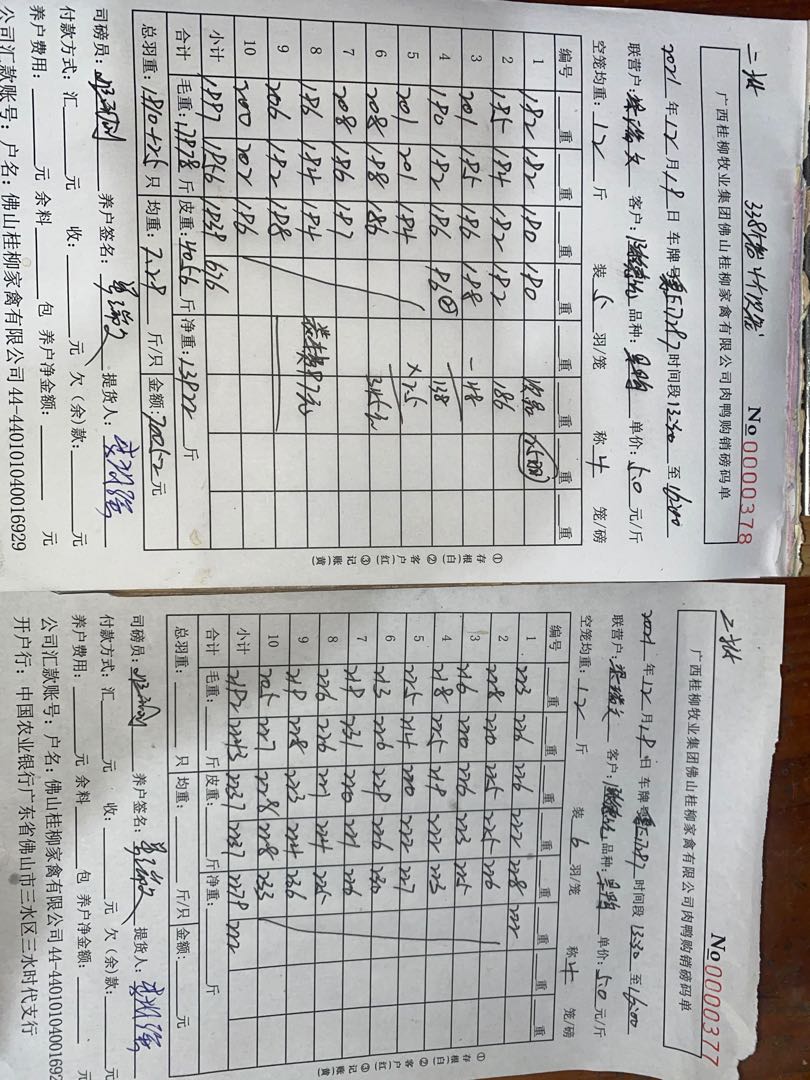 二批
No 0000378
广西桂柳牧业集团佛山桂柳家禽有限公司肉鸭购销磅码单
2021年12月18日 车牌号 时间段13:30至16:00
联营户: 客户: 品种: 单价:5.0元/斤
空笼均重:12斤 装5羽/笼 称4笼/磅
编号 重 重 重 重 重 重 重
1 182 182 180 180
2 185 184 182 182 186
3 201 185 186 188 -48
4 180 182 186 86② 138
5 201 201 184 ×2.5
6 208 188 186 345元
7 208 186 187
8 186 184 184
9 206 182 188
10 200 202 186
小计 1887 1856 1839 636
合计 毛重:17878斤 皮重:4056斤 净重:13822斤
总羽重:1810+25只 均重:7.28斤/只 金额:70052元
司磅员: 养户签名: 提货人:
付款方式:汇 元 收: 元 欠(余)款: 元
养户费用: 元 余料 包 养户净金额: 元
公司汇款账号:户名:佛山桂柳家禽有限公司44-440101040016929
①存根(白)②客户(红)③记账(黄)
二批
No 0000377
广西桂柳牧业集团佛山桂柳家禽有限公司肉鸭购销磅码单
2021年12月18日 车牌号 时间段13:30至16:00
联营户: 客户: 品种: 单价:5.0元/斤
空笼均重:12斤 装6羽/笼 称4笼/磅
编号 重 重 重 重 重 重 重
1 223 226 226 222 228 222
2 228 220 225 225 226
3 216 220 226 223 225
4 218 225 218 222 223
5 225 214 220 222 227
6 213 226 228 226 230
7 218 231 220 221 226
8 226 226 221 224 225
9 218 228 223 224 236
10 205 227 228 228 233
小计 2192 2243 2237 2237 2278 222
合计 毛重: 斤 皮重: 斤 净重: 斤
总羽重: 只 均重: 斤/只 金额: 元
司磅员: 养户签名: 提货人:
付款方式:汇 元 收: 元 欠(余)款: 元
养户费用: 元 余料 包 养户净金额: 元
公司汇款账号:户名:佛山桂柳家禽有限公司44-44010104001692
开户行:中国农业银行广东省佛山市三水区三水时代支行
①存根(白)②客户(红)③记账(黄)